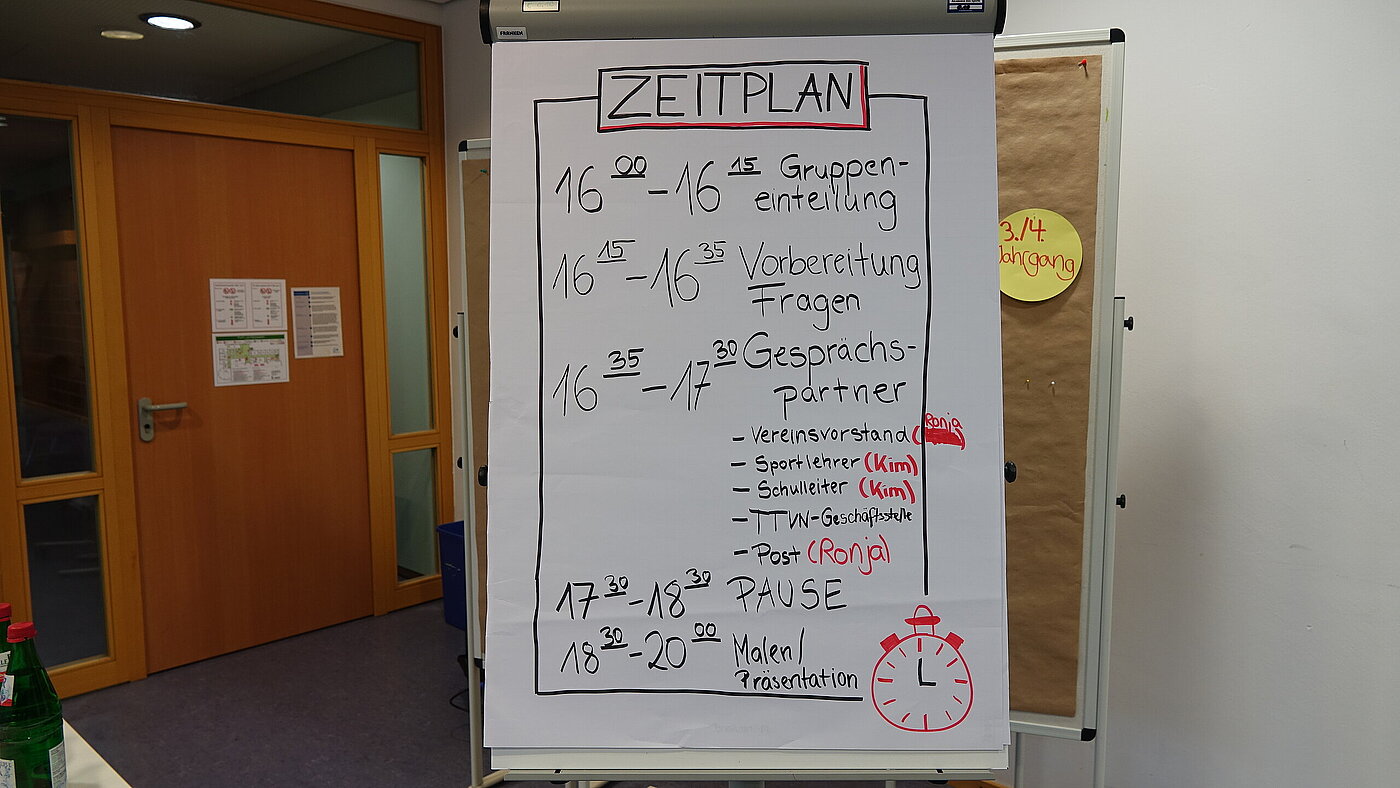 ZEITPLAN
16 00 - 16 15 Gruppen-
einteilung
16 15 - 16 35 Vorbereitung
Fragen
16 35 - 17 30 Gesprächs-
partner
- Vereinsvorstand (Ronja)
- Sportlehrer (Kim)
- Schulleiter (Kim)
- TTVN-Geschäftsstelle
- Post (Ronja)
17 30 - 18 30 PAUSE
18 30 - 20 00 Malen/
Präsentation
3./4.
Jahrgang